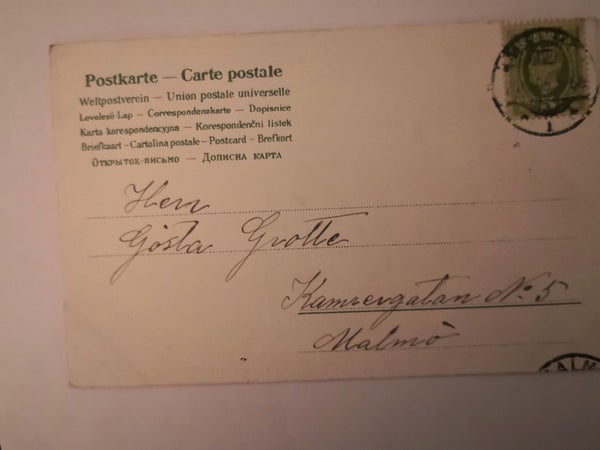 Postkarte — Carte postale
Weltpostverein — Union postale universelle
Levelező-Lap — Correspondenzkarte — Dopisnice
Karta korespondencyjna — Korespondenční lístek
Briefkaart — Cartolina postale — Postcard — Brefkort
Открытое-письмо — Дописна карта
Herr
Gösta Grotte
Kamrergatan No. 5
Malmö